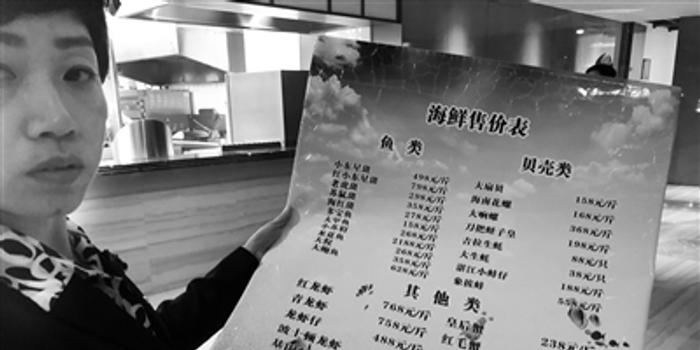 海鲜售价表
鱼类
小东星斑 498元/斤
红小东星斑 798元/斤
老虎斑 298元/斤
苏鼠斑 358元/斤
海红斑 278元/斤
多宝鱼 158元/斤
268元/斤
2188元/斤
268元/斤
358元/斤
628元/斤
贝壳类
大扇贝 158元/斤
海南花螺 168元/斤
大响螺 368元/斤
刀把蛏子皇 198元/斤
吉拉生蚝 88元/只
大生蚝 38元/只
湛江小蛏仔 188元/斤
象拔蚌
其他类
红龙虾 768元/斤
青龙虾 758元/斤
龙虾仔 488元/斤
波士顿龙虾
皇后蟹 238元/斤
红毛蟹